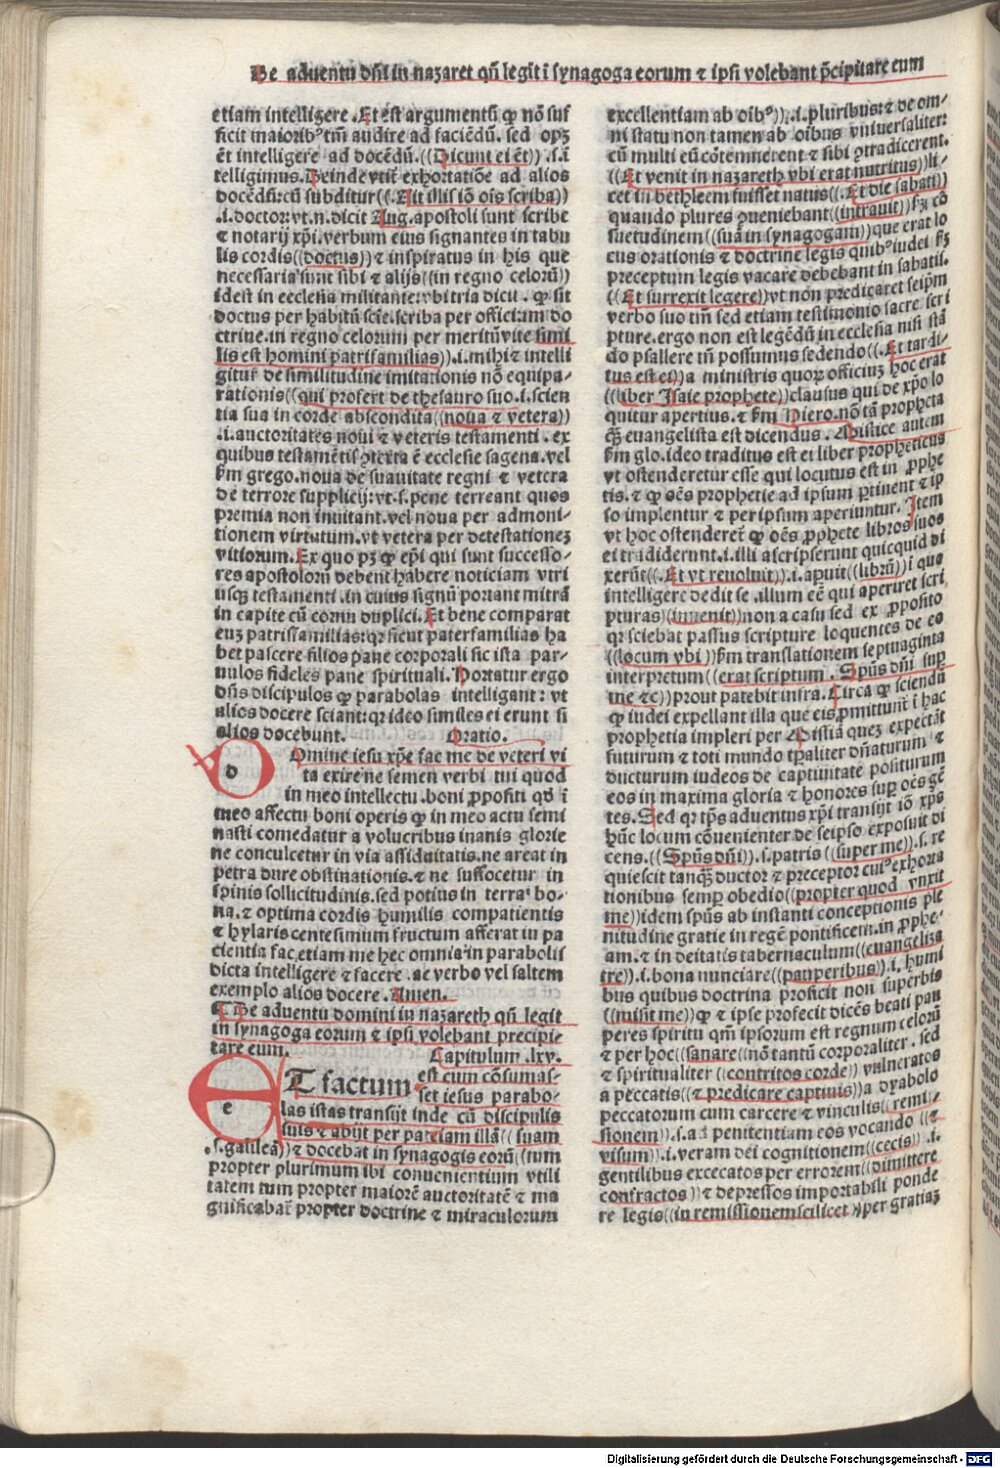 De aduentu dñi in nazaret qñ legit i synagoga eorum ⁊ ipsi volebant p̄cipitare eum
etiam intelligere. Et est argumentū ꝙ nō suf
ficit maioribꝰ tm̄ audire ad faciēdū. sed opꝫ
ēt intelligere ad docēdū. ((Dicunt ei ēt)) .i. ī
telligimus. Deinde vtit̄ exhortatiōe ad alios
docēdū: cū subditur ((. Ait illis iō oīs scriba))
.i. doctor: vt .n. dicit Aug. apostoli sunt scribe
⁊ notarij xp̄i. verbum eius signantes in tabu
lis cordis ((doctus)) ⁊ inspiratus in his que
necessaria sunt sibi ⁊ alijs ((in regno celorū))
idest in ecclesia militante: vbi tria dicū . ꝙ sit
doctus per habitū scīe. scriba per officium do
ctrine. in regno celorum per meritū vite simi
lis est homini patrifamilias)) .i. mihi ⁊ intelli
gitur de similitudine imitationis nō equipa-
rationis ((qui profert de thesauro suo .i. scien
tia sua in corde abscondita ((noua ⁊ vetera))
.i. auctoritates noui ⁊ veteris testamenti . ex
quibus testamētis ꝯtexta ē ecclesie sagena. vel
ẜm grego. noua de suauitate regni ⁊ vetera
de terrore supplicij: vt .s. pene terreant quos
premia non inuitant. vel noua per admoni-
tionem virtutum. vt vetera per detestationeꝫ
vitiorum. Ex quo pꝫ ꝙ ep̄i qui sunt successo-
res apostolorū debent habere noticiam vtri
usqꝫ testamenti. in cuius signū portant mitrā
in capite cū cornu duplici. Et bene comparat
euꝫ patrifamilias: qꝛ sicut paterfamilias ha
bet pascere filios pane corporali sic ista par-
uulos fideles pane spirituali. Hortatur ergo
dn̄s discipulos ꝙ parabolas intelligant: vt
alios docere sciant: qꝛ ideo similes ei erunt si
alios docebunt. Oratio.
d Omine iesu xp̄e fac me de veteri vi
ta exire: ne semen verbi tui quod
in meo intellectu. boni ꝓpositi qd̄ ī
meo affectu boni operis ꝙ in meo actu semi
nasti comedatur a volucribus inanis glorie
ne conculcetur in via assiduitatis. ne areat in
petra dure obstinationis. ⁊ ne suffocetur in
spinis sollicitudinis. sed potius in terra bo-
na. ⁊ optima cordis humilis compatientis
⁊ hylaris centesimum fructum afferat in pa
cientia fac. etiam me hec omnia in parabolis
dicta intelligere ⁊ facere. ac verbo vel saltem
exemplo alios docere. Amen.
De aduentu domini in nazareth qñ legit
in synagoga eorum ⁊ ipsi volebant precipi-
tare eum. Capitulum .lxv.
e T factum est cum cōsumas-
set iesus parabo-
las istas transijt inde cū discipulis
suis ⁊ abijt per patriam illā ((suam
.s. galileā)) ⁊ docebat in synagogis eorū ((tum
propter plurimum ibi conuenientium vtili
tatem tum propter maiorē auctoritatē ⁊ ma
gnificabat̄ propter doctrine ⁊ miraculorum
excellentiam ab oībꝰ)) .i. pluribus: ⁊ de om-
ni statu non tamen ab oībus vniuersaliter:
cū multi eū cōtemnerent ⁊ sibi ꝯtradicerent.
((Et venit in nazareth vbi erat nutritus)) li-
cet in bethleem fuisset natus ((. Et die sabati))
quando plures ꝯueniebant ((intrauit)) ẜm cō
suetudinem ((suā in synagogam)) que erat lo
cus orationis ⁊ doctrine legis quibꝰ iudei ẜm
preceptum legis vacare debebant in sabatis.
((Et surrexit legere)) vt non predicaret seip̄m
verbo suo tm̄ sed etiam testimonio sacre scri
pture. ergo non est legēdū in ecclesia nisi stā
do psallere tn̄ possumus sedendo ((. Et tardi-
tus est ei)) a ministris quoꝝ officiuꝫ hoc erat
((liber Isaie prophete)) clausus qui de xp̄o lo
quitur apertius. ⁊ ẜm Hiero. nō tā propheta
qꝫ̄ euangelista est dicendus . Mistice autem
ẜm glo. ideo traditus est ei liber propheticus
vt ostenderetur esse qui locutus est in ꝓphe
tis. ⁊ ꝙ oēs prophetie ad ipsum ꝑtinent ⁊ ip
so implentur ⁊ per ipsum aperiuntur. Item
vt hoc ostenderet̄ ꝙ oēs ꝓphete libros suos
ei tradiderunt. i. illi ascripserunt quicquid di
xerūt ((. Et vt reuoluit)) .i. apuit ((librū)) i quo
intelligere dedit se .illum eē qui aperiret scri
pturas) (inuenit)) non a casu sed ex ꝓposito
qꝛ sciebat passus scripture loquentes de eo
((locum vbi)) ẜm translationem septuaginta
interpretum ((erat scriptum . Spūs dn̄i suꝑ
me ⁊c)) prout patebit infra. Circa ꝙ sciendū
ꝙ iudei expellant illa que eis ꝓmittunt̄ i hac
prophetia impleri per Messiā quez expectāt
futurum ⁊ toti mundo tp̄aliter dn̄aturum ⁊
ducturum iudeos de captiuitate positurum
eos in maxima gloria ⁊ honores suꝑ oēs gē
tes. Sed qꝛ tp̄s aduentus xp̄i transijt iō xp̄s
hūc locum cōuenienter de seipso exposuit di
cens. ((Spūs dn̄i)) .s. patris ((super me)) .s. re
quiescit tanqꝫ̄ ductor ⁊ preceptor cuiꝰ exhorta
tionibus semꝑ obedio ((propter quod vnxit
me)) idem spūs ab instanti conceptionis ple
nitudine gratie in regē pontificem. in ꝓphe-
am. ⁊ in deitatis tabernaculum ((euangeliza
tre)) .i. bona nunciare ((pauperibus)) .i. humi
bus quibus doctrina proficit non superbis
((misit me)) ꝙ ⁊ ipse profecit dicēs beati pau
peres spiritu qm̄ ipsorum est regnum celorū
⁊ per hoc ((sanare ((nō tantū corporaliter . sed
⁊ spiritualiter ((contritos corde)) vulneratos
a peccatis ((⁊ predicare captiuis)) a dyabolo
peccatorum cum carcere ⁊ vinculis ((remi-
sionem)) .s. ad penitentiam eos vocando ((⁊
visum)) .i. veram dei cognitionem ((cecis)) .i.
gentilibus excecatos per errorem ((dimittere
confractos)) ⁊ depressos importabili ponde
re legis ((in remissionem scilicet)) per gratiaꝫ
Digitalisierung gefördert durch die Deutsche Forschungsgemeinschaft - DFG